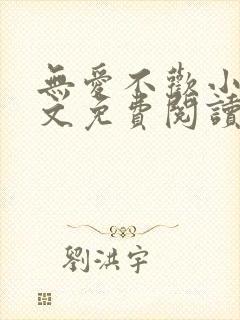 無愛不歡小
文免費閱讀
劉洪宇